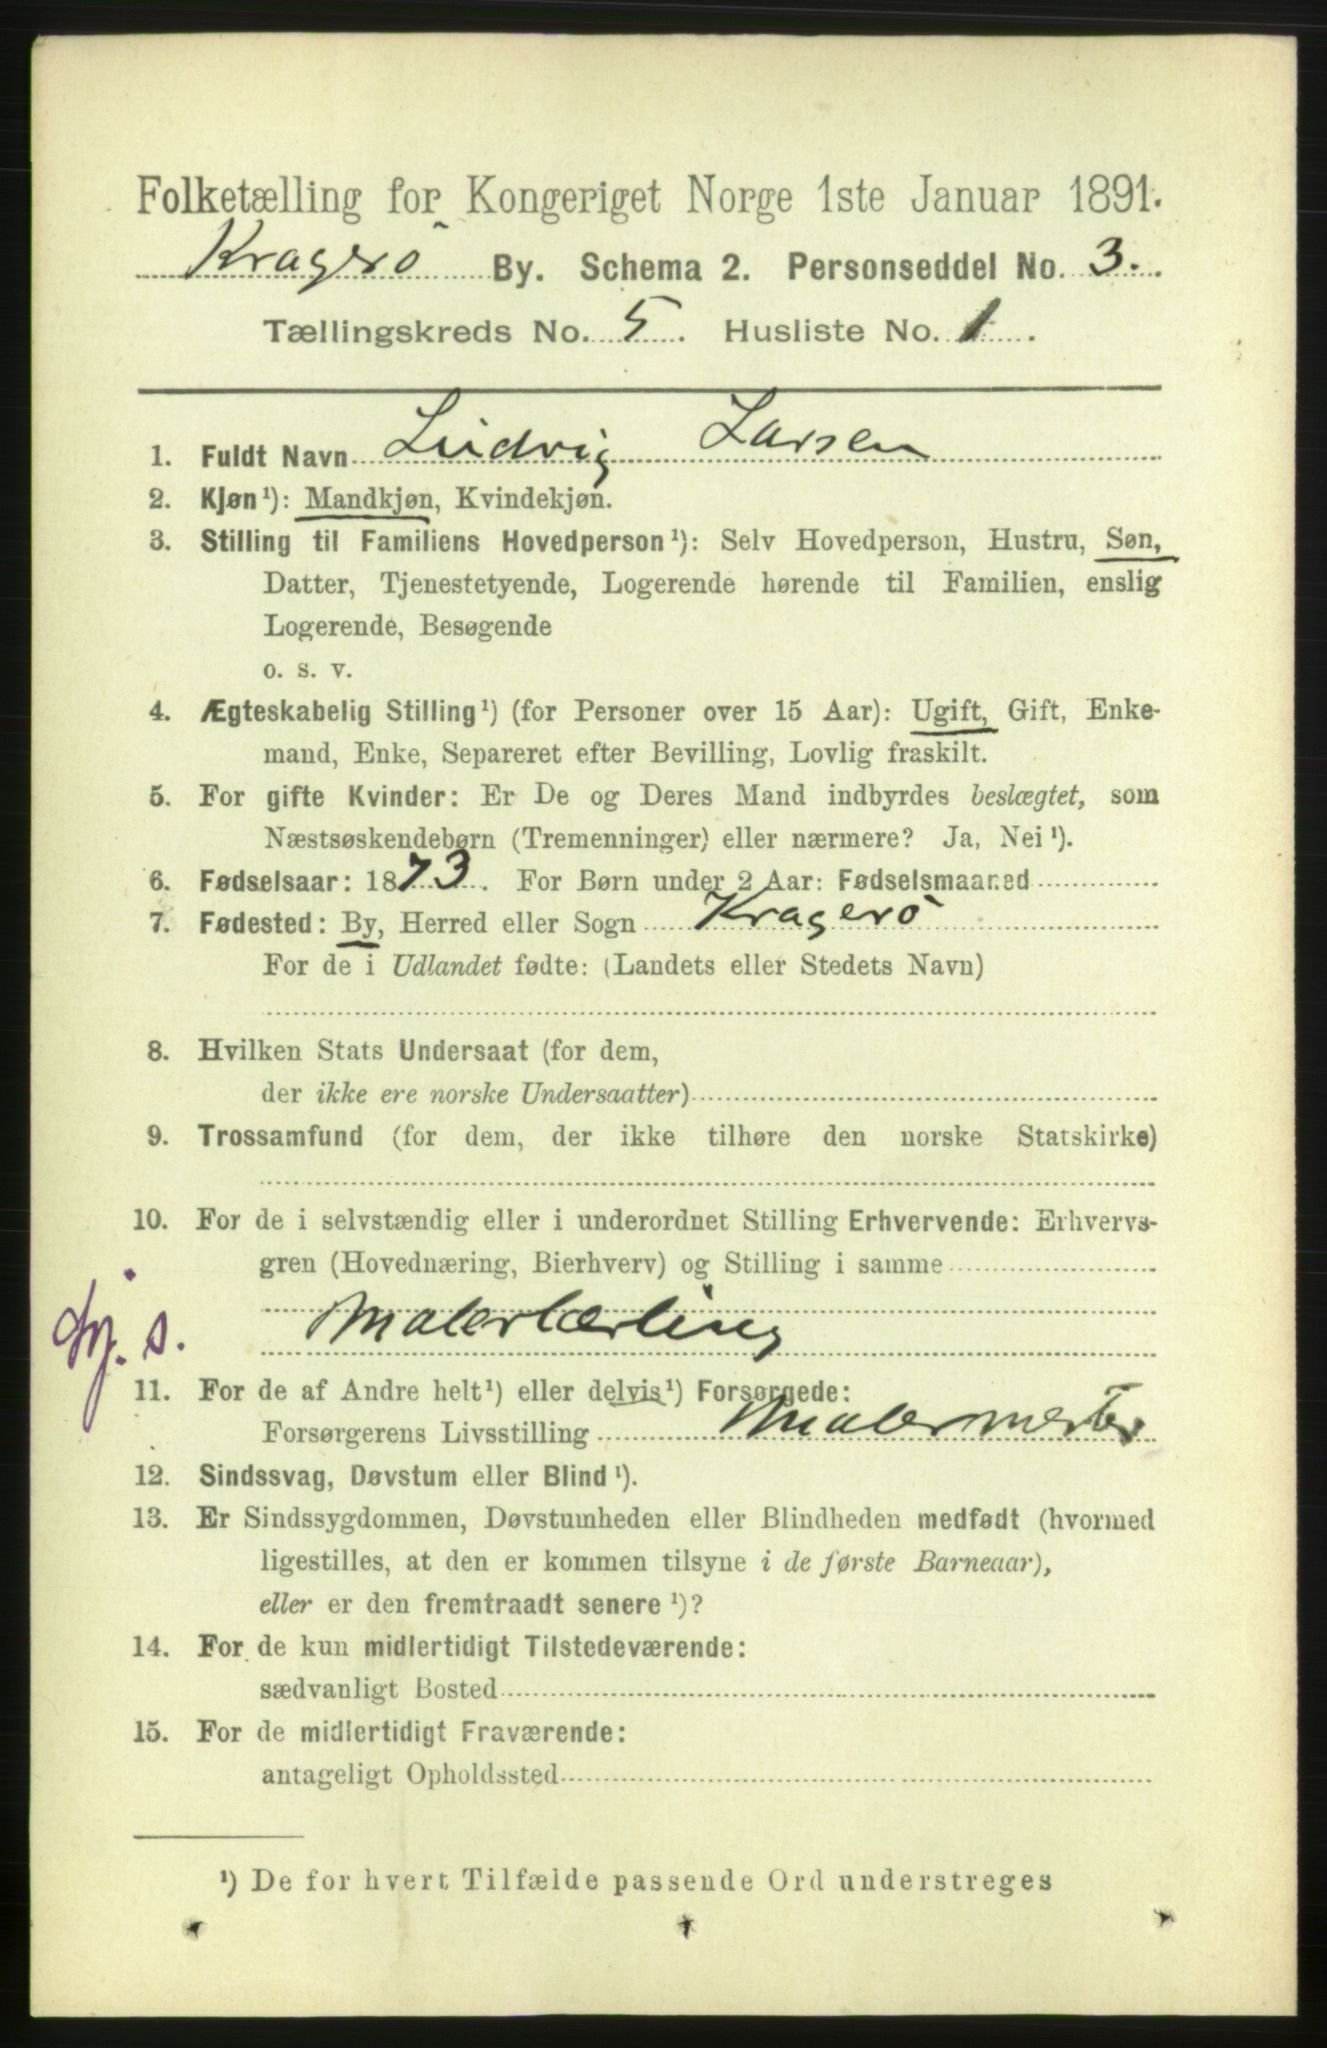 Folketælling for Kongeriget Norge 1ste Januar 1891.
Kragerö By. Schema 2. Personseddel No. 3.
Tællingskreds No. 5. Husliste No. 1.
1. Fuldt Navn Ludvig Larsen
2. Kjøn¹): Mandkjøn, Kvindekjøn.
3. Stilling til Familiens Hovedperson¹): Selv Hovedperson, Hustru, Søn,
Datter, Tjenestetyende, Logerende hørende til Familien, enslig
Logerende, Besøgende
o. s. v.
4. Ægteskabelig Stilling¹) (for Personer over 15 Aar): Ugift, Gift, Enke-
mand, Enke, Separeret efter Bevilling, Lovlig fraskilt.
5. For gifte Kvinder: Er De og Deres Mand indbyrdes beslægtet, som
Næstsøskendebørn (Tremenninger) eller nærmere? Ja, Nei¹).
6. Fødselsaar: 1873. For Børn under 2 Aar: Fødselsmaaned
7. Fødested: By, Herred eller Sogn Kragerö
For de i Udlandet fødte: (Landets eller Stedets Navn)
8. Hvilken Stats Undersaat (for dem,
der ikke ere norske Undersaatter)
9. Trossamfund (for dem, der ikke tilhøre den norske Statskirke)
10. For de i selvstændig eller i underordnet Stilling Erhvervende: Erhvervs-
gren (Hovednæring, Bierhverv) og Stilling i samme
Malerlærling
11. For de af Andre helt¹) eller delvis¹) Forsørgede:
Forsørgerens Livsstilling Malermester
12. Sindssvag, Døvstum eller Blind¹).
13. Er Sindssygdommen, Døvstumheden eller Blindheden medfødt (hvormed
ligestilles, at den er kommen tilsyne i de første Barneaar),
eller er den fremtraadt senere¹)?
14. For de kun midlertidigt Tilstedeværende:
sædvanligt Bosted
15. For de midlertidigt Fraværende:
antageligt Opholdssted
¹) De for hvert Tilfælde passende Ord understreges